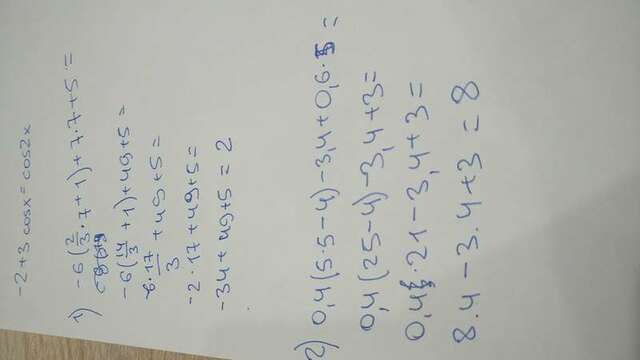 -2+3 cosx = cos2x
1) -6(2/3 · 7 + 1) + 7·7+5 =
-6(14/3 + 1) + 49+5 =
-6·17/3 + 49+5 =
-2·17+49+5=
-34+49+5 = 2
2) 0,4(5·5-4)-3,4+0,6·5 =
0,4(25-4)-3,4+3=
0,4·21-3,4+3=
8.4-3.4+3 = 8